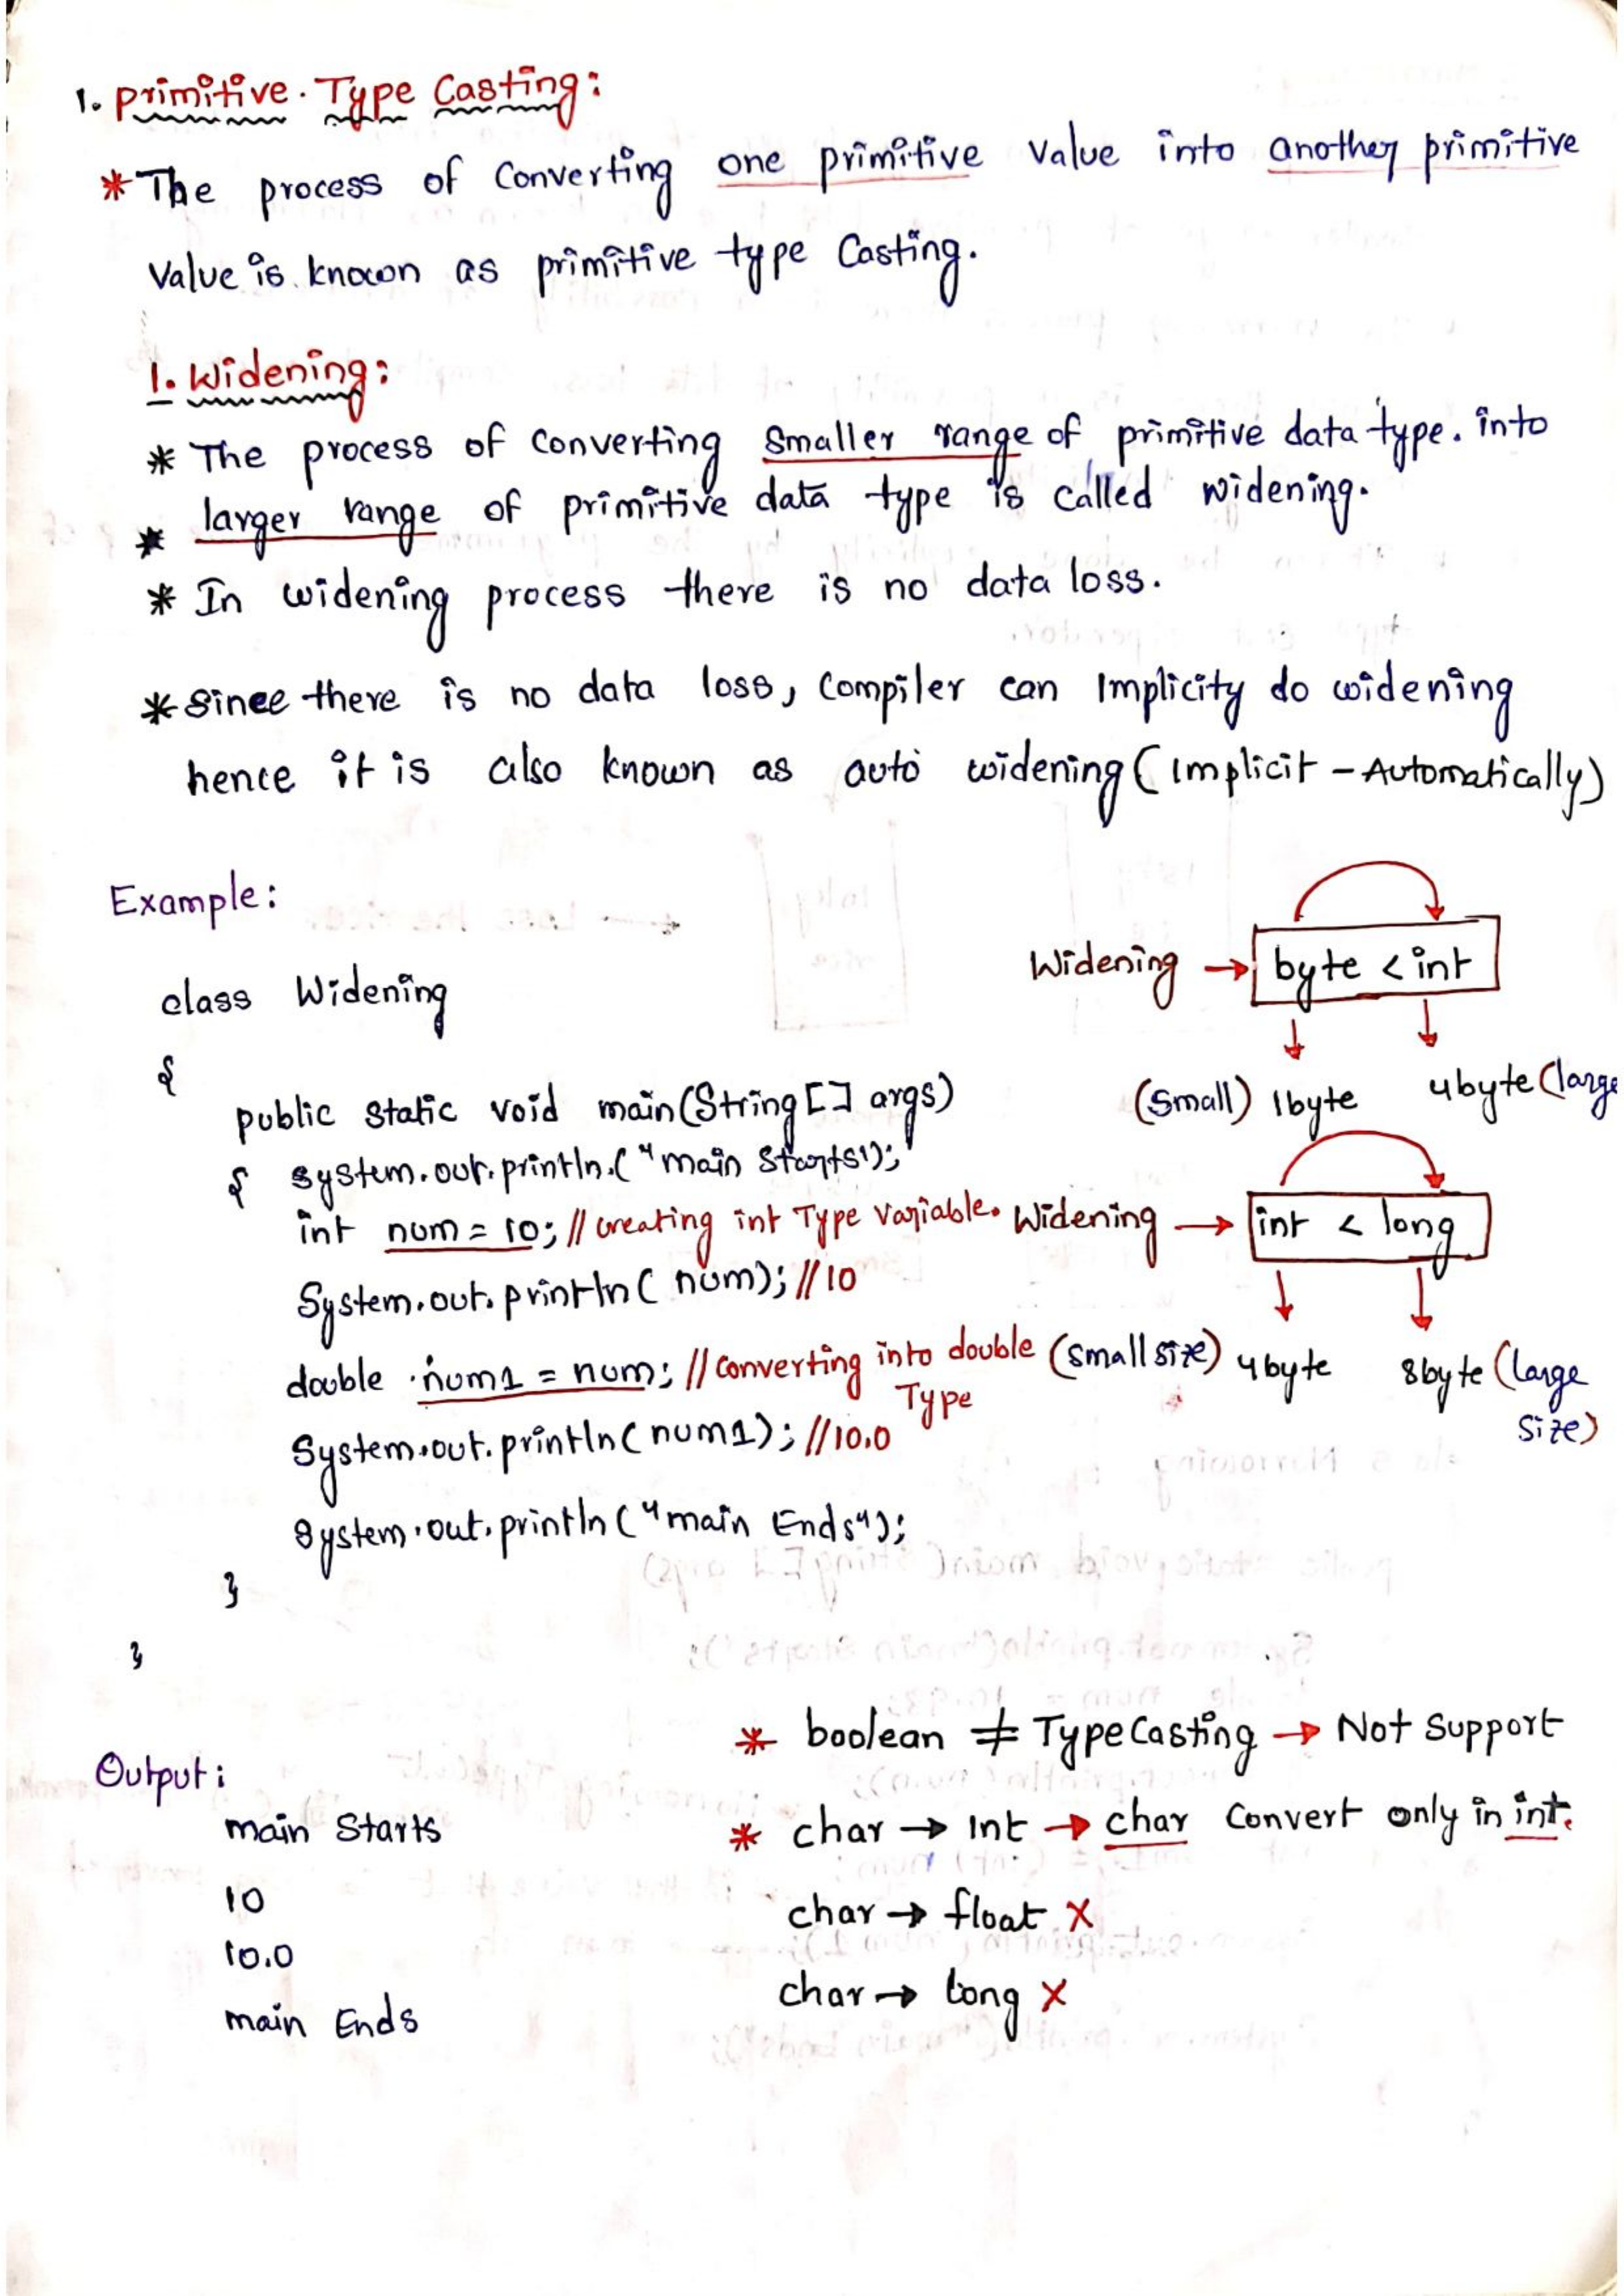 1. primitive. Type Casting:
* The process of Converting one primitive Value into another primitive
Value is. known as primitive type Casting.
1. Widening:
* The process of converting Smaller range of primitive data type. into
* larger range of primitive data type is called widening.
* In widening process there is no data loss.
* Since there is no data loss, Compiler can Implicity do widening
hence it is also known as auto widening (Implicit - Automatically)
Example:
Widening → byte < int
(Small) 1byte 4byte (large
class Widening
{
public static void main(String[] args)
{ System.out.println.("main Starts");
int num = 10; // creating int Type Variable.
System.out.println( num); //10
double .num1 = num; // Converting into double
Type
System.out.println(num1); //10.0
System.out.println("main Ends");
}
}
Widening → int < long
(Small size) 4byte 8byte (large
Size)
Output:
main Starts
10
10.0
main Ends
* boolean ≠ TypeCasting → Not Support
* char → Int → char Convert only in int.
char → float X
char → long X